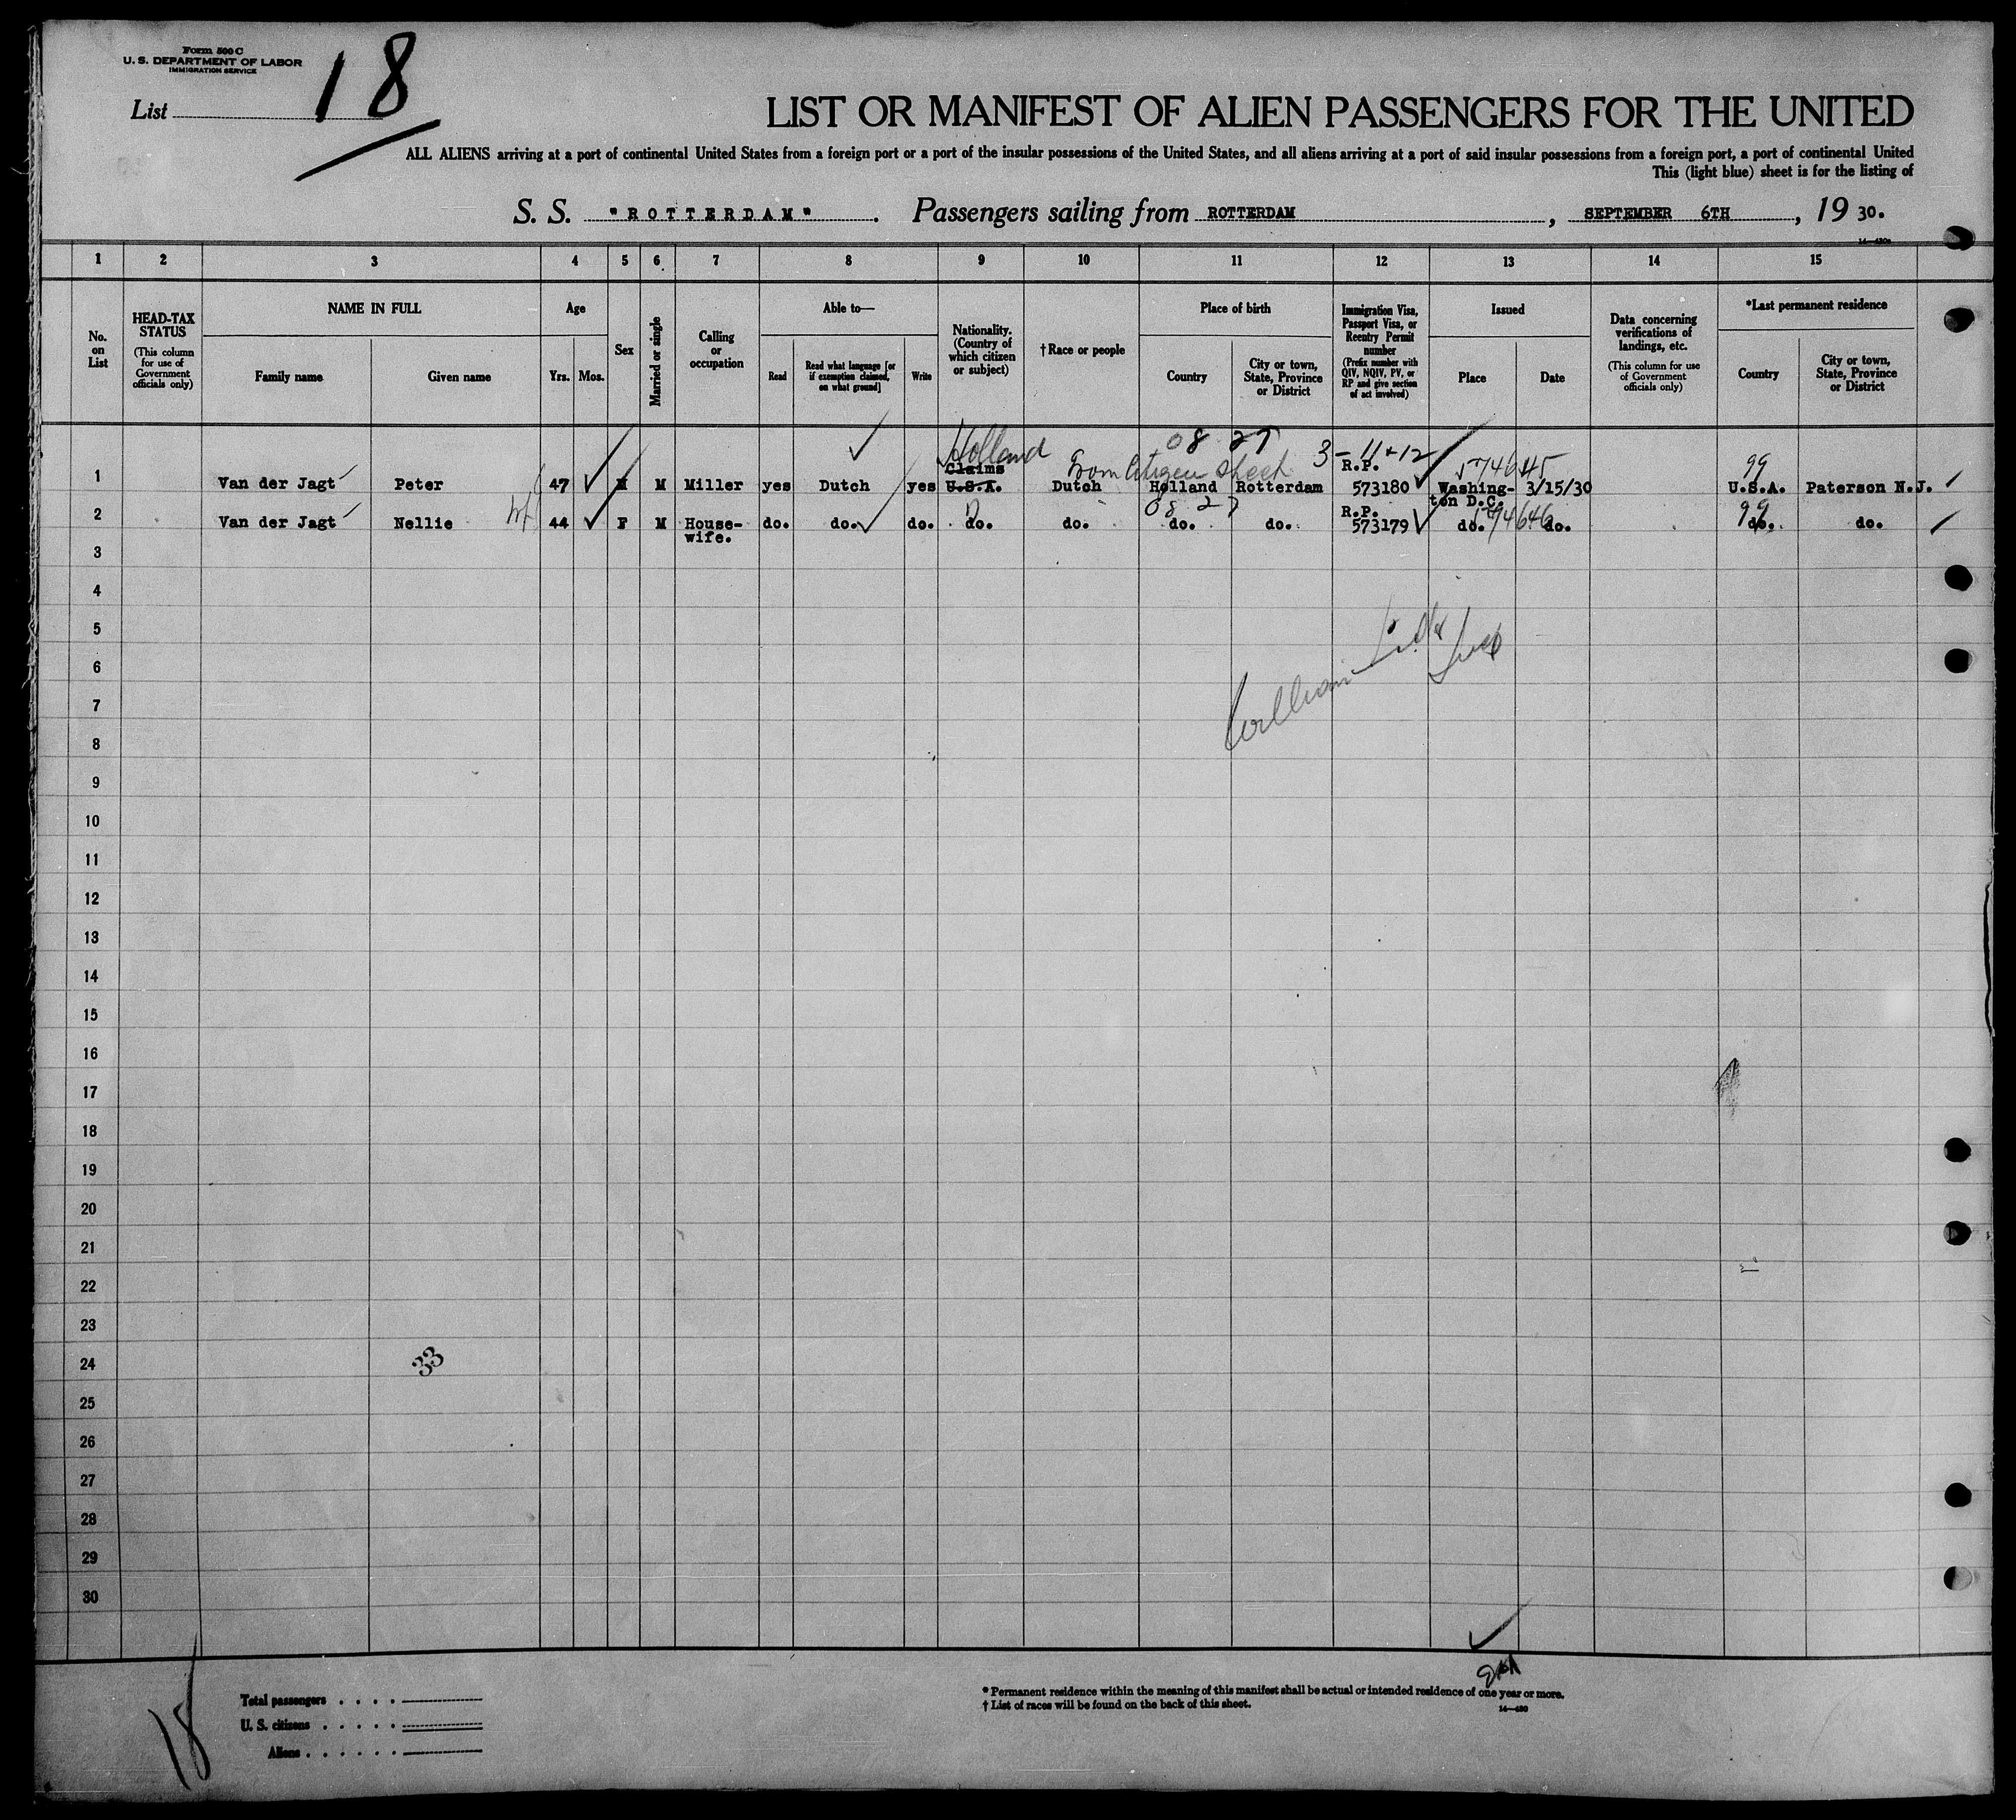 Form 500 C
U. S. DEPARTMENT OF LABOR
IMMIGRATION SERVICE
List 18
LIST OR MANIFEST OF ALIEN PASSENGERS FOR THE UNITED
ALL ALIENS arriving at a port of continental United States from a foreign port or a port of the insular possessions of the United States, and all aliens arriving at a port of said insular possessions from a foreign port, a port of continental United
This (light blue) sheet is for the listing of
S. S. "ROTTERDAM". Passengers sailing from ROTTERDAM, SEPTEMBER 6TH, 19 30.
1 2 3 4 5 6 7 8 9 10 11 12 13 14 15
No. on List
HEAD-TAX STATUS
(This column for use of Government officials only)
NAME IN FULL
Family name
Given name
Age
Yrs. Mos.
Sex
Married or single
Calling or occupation
Able to—
Read
Read what language [or if exemption claimed, on what ground]
Write
Nationality. (Country of which citizen or subject)
† Race or people
Place of birth
Country
City or town, State, Province or District
Immigration Visa, Passport Visa, or Reentry Permit number
(Prefix number with QIV, NQIV, PV, or RP and give section of act involved)
Issued
Place
Date
Data concerning verifications of landings, etc.
(This column for use of Government officials only)
*Last permanent residence
Country
City or town, State, Province or District
Holland 08 27 3-11+12
Claims From Citizen sheet R.P. 574645 99
1 Van der Jagt Peter 47 M M Miller yes Dutch yes U.S.A. Dutch Holland Rotterdam 573180 Washing- 3/15/30 U.S.A. Paterson N.J.
ton D.C.
08 27 R.P. 574646 99
2 Van der Jagt Nellie wf 44 F M House- do. do. do. do. do. do. do. 573179 do. do. do. do.
wife.
3
4
5
6
7
8
9
10
11
12
13
14
15
16
17
18
19
20
21
22
23
24 33
25
26
27
28
29
30
18
Total passengers
U. S. citizens
Aliens
* Permanent residence within the meaning of this manifest shall be actual or intended residence of one year or more.
† List of races will be found on the back of this sheet.
14—430